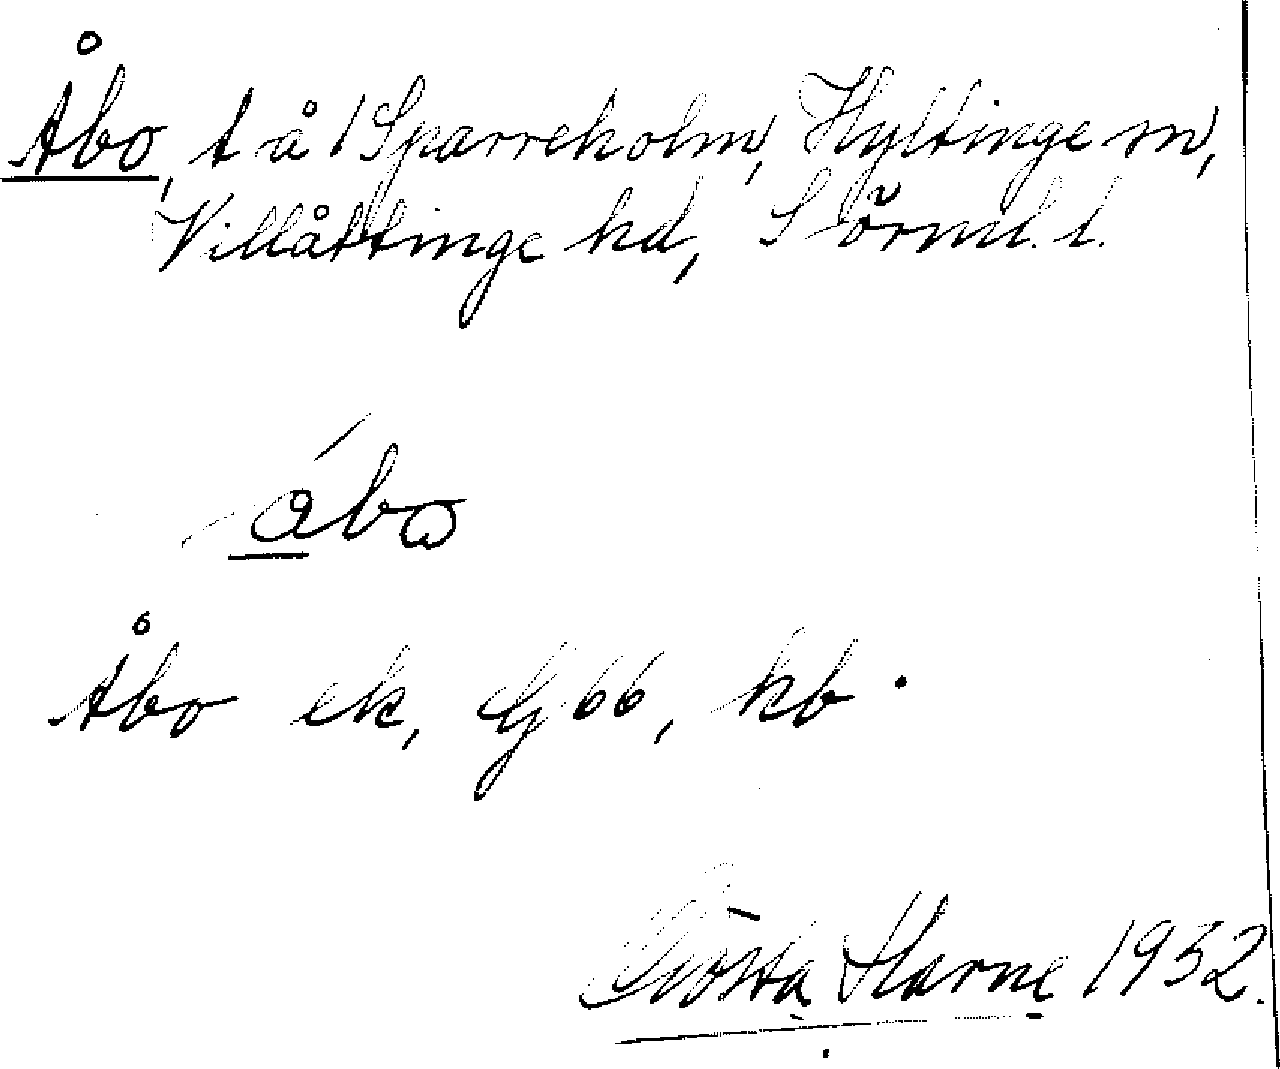 Åbo, t å 1 Sparreholm, Hyltinge sn,
Villåttinge hd, Sörml. l.
åbo
Åbo ek, G 66, kb.
Gösta 1932.